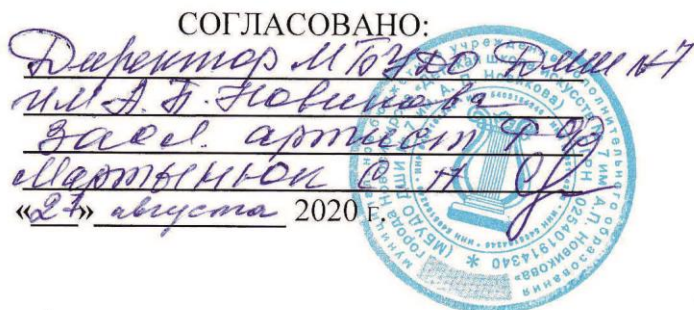 СОГЛАСОВАНО:
Директор МБУДО ДШИ №7
им А. П. Новикова
Засл. артист РФ
Мартынюк С Н
«27» августа 2020 г.